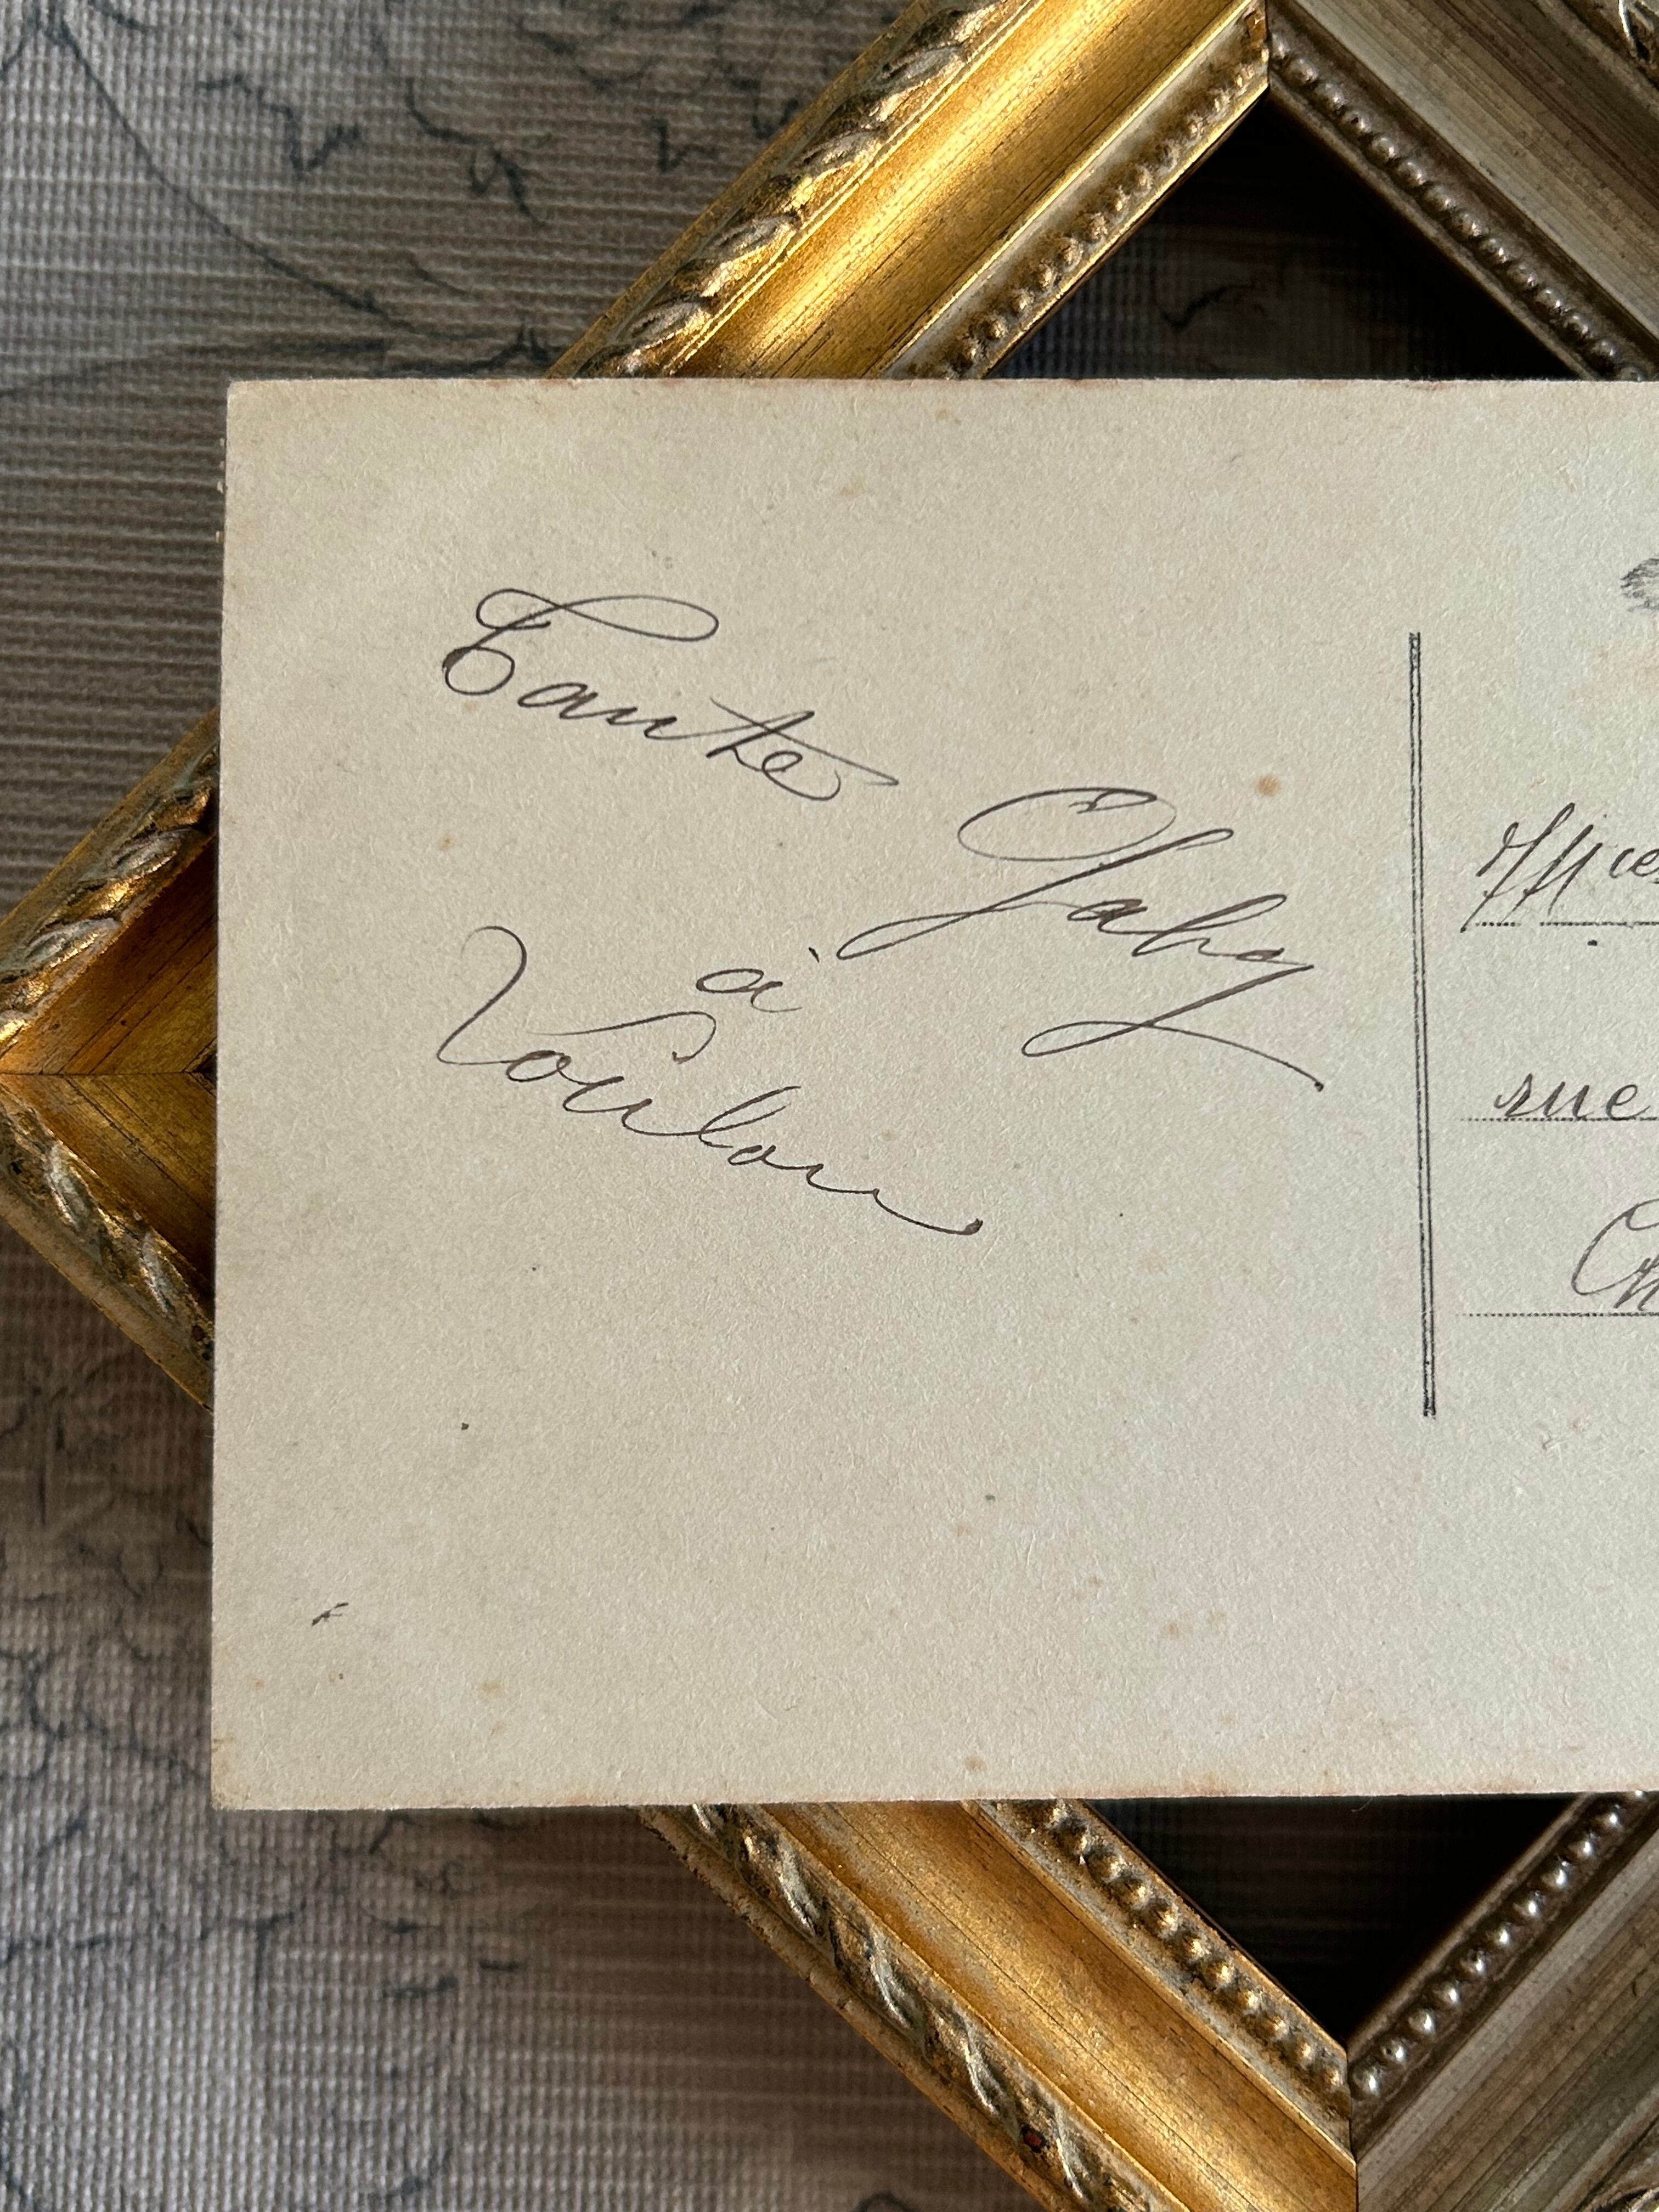 Tante Gaby
à
Voulon
rue
Ch